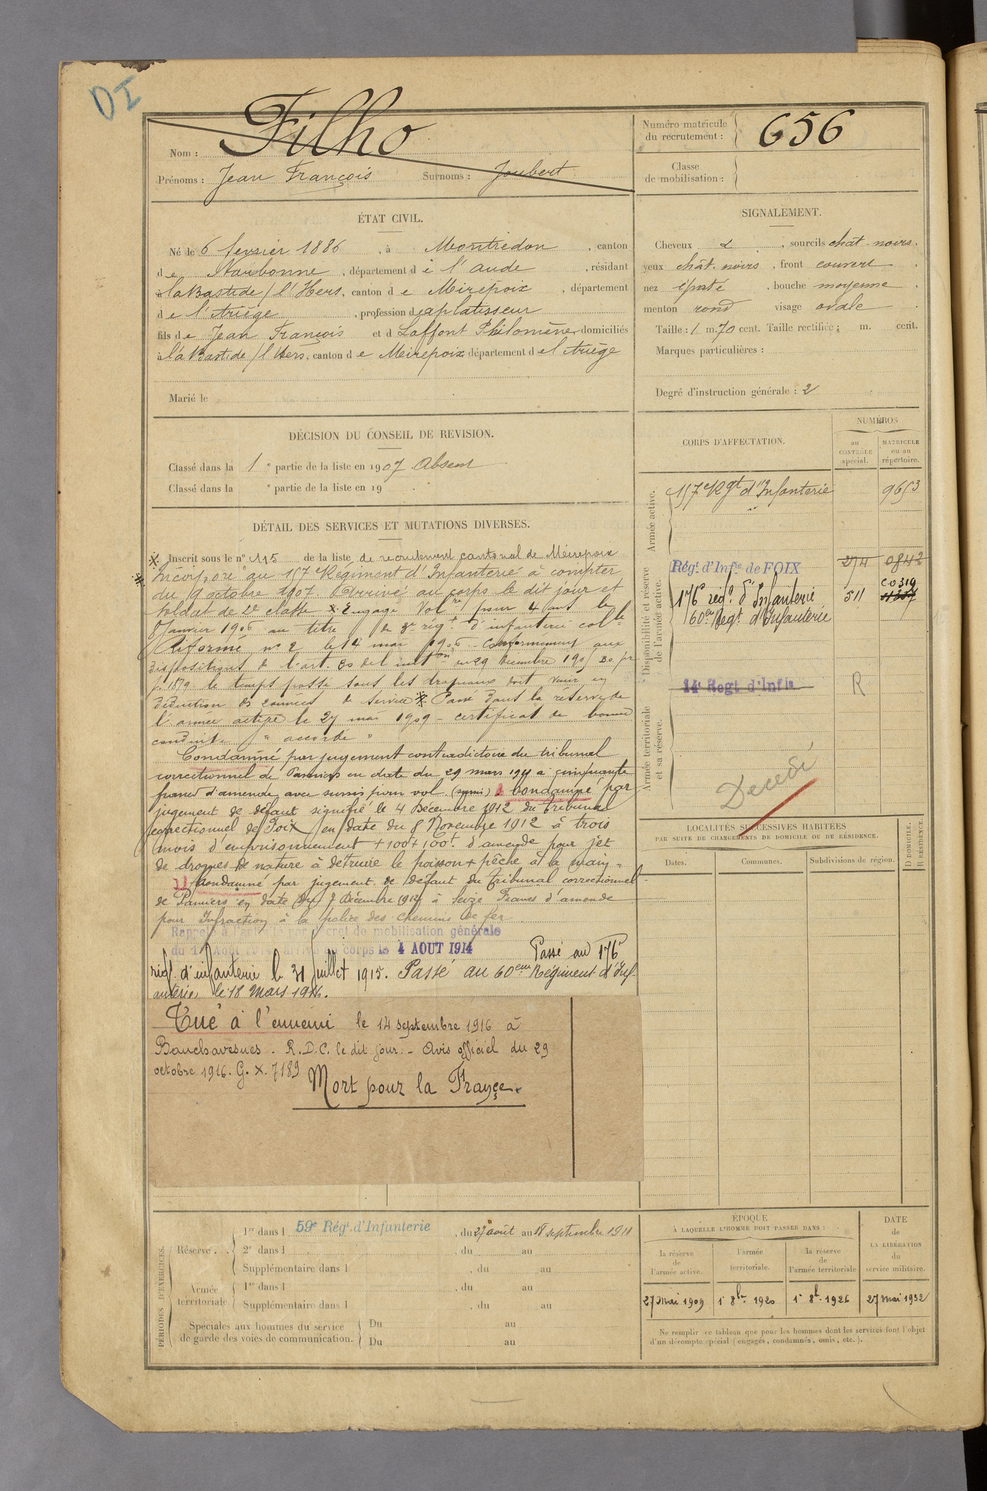 DI
Nom : Filho
Prénoms : Jean François Surnoms : Joubert
Numéro matricule du recrutement : 656
Classe de mobilisation :
ÉTAT CIVIL.
Né le 6 fevrier 1886, à Montredon, canton
de Narbonne, département de l'aude, résidant
à la Bastide s/ l'Hers, canton de Meirepoix, département
de l'Ariège, profession de aplatisseur
fils de Jean François et de Laffont Philomène, domiciliés
à la Bastide s/ l'Hers, canton de Meirepoix département de l'Ariège
Marié le
SIGNALEMENT.
Cheveux , sourcils chât noirs.
yeux chât. noirs, front couvert
nez épaté, bouche moyenne
menton rond visage ovale
Taille : 1 m. 70 cent. Taille rectifiée : m. cent.
Marques particulières :
Degré d'instruction générale : 2
DÉCISION DU CONSEIL DE REVISION.
Classé dans la 1e partie de la liste en 1907 Absent
Classé dans la e partie de la liste en 19
DÉTAIL DES SERVICES ET MUTATIONS DIVERSES.
Inscrit sous le n° 115 de la liste de recrutement cantonal de Meirepoix
Incorporé au 157e Régiment d'Infanterie à compter
du 9 octobre 1907. Arrivé au corps le dit jour et
soldat de 2e classe * Engagé Volre pour 4 ans le
8 Janvier 1906 au titre du 8e régt d'infanterie colle
Réformé n° 2 le 4 mai 1906 Conformément aux
dispositions de l'art.
le temps passé sous les drapeaux doit venir en
déduction de service * Passé dans la réserve de
l'armée active le 27 mai 1909 - certificat de bonne
conduite "accordé"
Condamné par jugement contradictoire du tribunal
correctionnel de Pamiers en date du 29 mars 1911 à cinquante
francs d'amende avec sursis pour vol Condamné par
jugement de défaut signifié le 4 Décembre 1912 du tribunal
correctionnel de Foix en date du 8 Novembre 1912 à trois
mois d'emprisonnement + 100 + 100f. d'amende pour jet
de drogues de nature à détruire le poisson + pêche à la main
Condamné par jugement de défaut du tribunal correctionnel
de Pamiers en date du Décembre à seize Francs d'amende
pour Infraction à la police des chemins de fer
Rappelé à l'activité par décret de mobilisation générale
du 1er Août 1914 arrivé au corps le 4 AOUT 1914
Passé au 176e
régt d'infanterie le 31 juillet 1915. Passé au 60eme Régiment d'Inf
anterie le 18 Mars 1916.
Tué à l'ennemi le 14 septembre 1916 à
Bouchavesnes. R.D.C. le dit jour. - Avis officiel du 29
octobre 1916. G. X. 7183
Mort pour la France.
CORPS D'AFFECTATION.
NUMÉROS
au CONTRÔLE spécial.
MATRICULE ou au répertoire.
Armée active.
157e Régt d'Infanterie 9653
Disponibilité et réserve de l'armée active.
Régt. d'Infie de FOIX 274 0842
176e régt. d'Infanterie 511 C0319
60eme Régt d'Infanterie
Armée territoriale et sa réserve.
14e Regt d'Infie R
Décédé
LOCALITÉS SUCCESSIVES HABITÉES
PAR SUITE DE CHANGEMENTS DE DOMICILE OU DE RÉSIDENCE.
Dates. Communes. Subdivisions de région. D DOMICILE. R RÉSIDENCE.
PÉRIODES D'EXERCICES.
Réserve.
1re dans l 59e Régt. d'Infanterie, du 27 août au 18 septembre 1911
2e dans l , du au
Supplémentaire dans l , du au
Armée territoriale
1re dans l , du au
Supplémentaire dans l , du au
Spéciales aux hommes du service de garde des voies de communication.
Du au
Du au
ÉPOQUE
À LAQUELLE L'HOMME DOIT PASSER DANS :
la réserve de l'armée active.
l'armée territoriale.
la réserve de l'armée territoriale
DATE de LA LIBÉRATION du service militaire.
27 mai 1909 1r 8bre 1920 1r 8bre 1926 27 mai 1932
Ne remplir ce tableau que pour les hommes dont les services font l'objet
d'un décompte spécial (engagés, condamnés, omis, etc.).